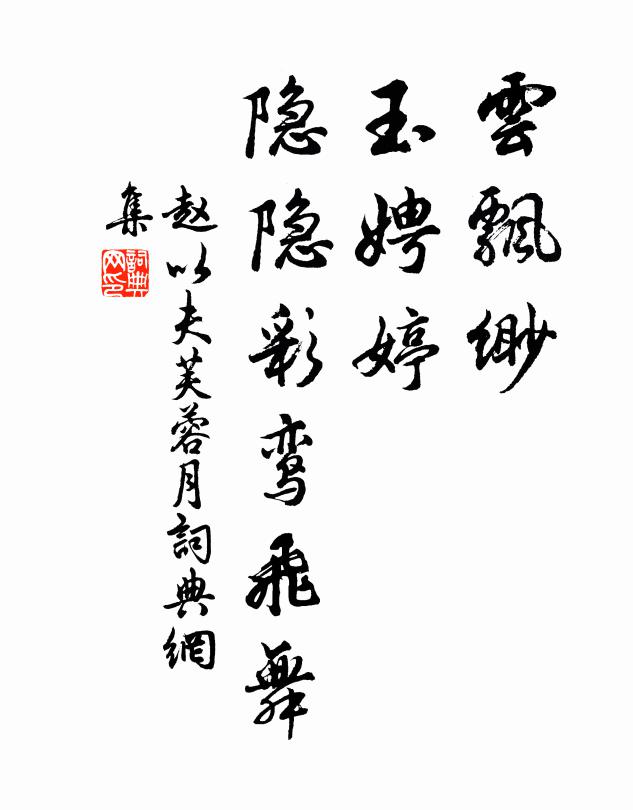 雲飄缈
玉娉婷
隐隐彩鸾飛舞
赵以夫芙蓉月詞典網
集
詞典网印